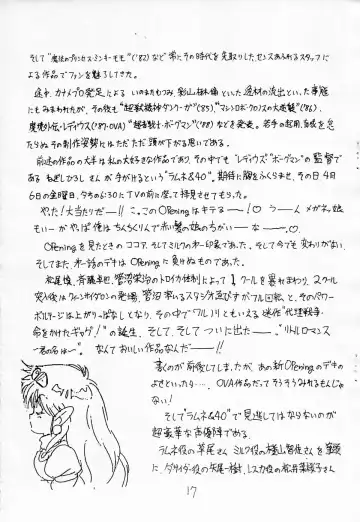 そして"魔法のプリンセス・ミンキーモモ"('82)など常にその時代を先取りした、センスあふれるスタッフに
よる作品でファンを魅了してきた。
途中、カナメプロ発足による いのまたむつみ、影山楙倫 といった逸材の流出といった事態
にもみまわれたが、その後も"超獣機神ダンクーガ"('85)、"マシンロボ・クロノスの大逆襲"('86)、
魔境外伝・レディウス('87・OVA) "超音戦士・ボーグマン"('88)などを発表。若手の起用、育成を怠
たらぬその制作姿勢にはただただ頭が下がる思いである。
前述の作品の大半は私の大好きな作品であり、その中でも"レディウス""ボーグマン"の監督で
ある ねぎしひろし さん が手がけるという"ラムネ&40"。期待に胸をふくらませ、その日4月
6日の金曜日、夕ちの6:30にTVの前に座って拝見させてもらった。
やった！大当たりだー!! こ、このOpeningはキテるー!♡ うーん メガネっ娘
もいーが やっぱ俺は ちんちくりんで赤い髪の娘の方がいーなー。♡
Openingを見たときのココア、そしてミルクの第一印象であった。そして今でも変わりがない。
そしてまた、第一話のデキはOpeningに負けぬものであった。
松尾慎、斉藤卓也、菅沼栄治のトロイカ体制によって1クールを暴れまわり、2クール
突入後はクィン・サイダロンの登場、菅沼率いるスタジオ並びがフル回転と、そのパワー
ボルテージは上がりっぱなしとなり、その中で「フル」ともいえる迷作"代理戦争・
命をかけたギャグ!"の誕生、そして、そして ついに出たー。"リトルロマンス
〜君の名は〜"。 なんておいしい作品なんだー!!
書くのが前後してしまったが、あの新Openingのデキの
よさといったら‥‥、OVA作品だってそうそうみれるもんじゃ
ない!
そして"ラムネ&40"で見逃してはならないのが
超豪華な声優陣である。
ラムネ役の草尾さん ミルク役の横山智佐さんを筆頭
に、ダ・サイダー役の矢尾一樹、レスカ役の松井菜桜子さん
17